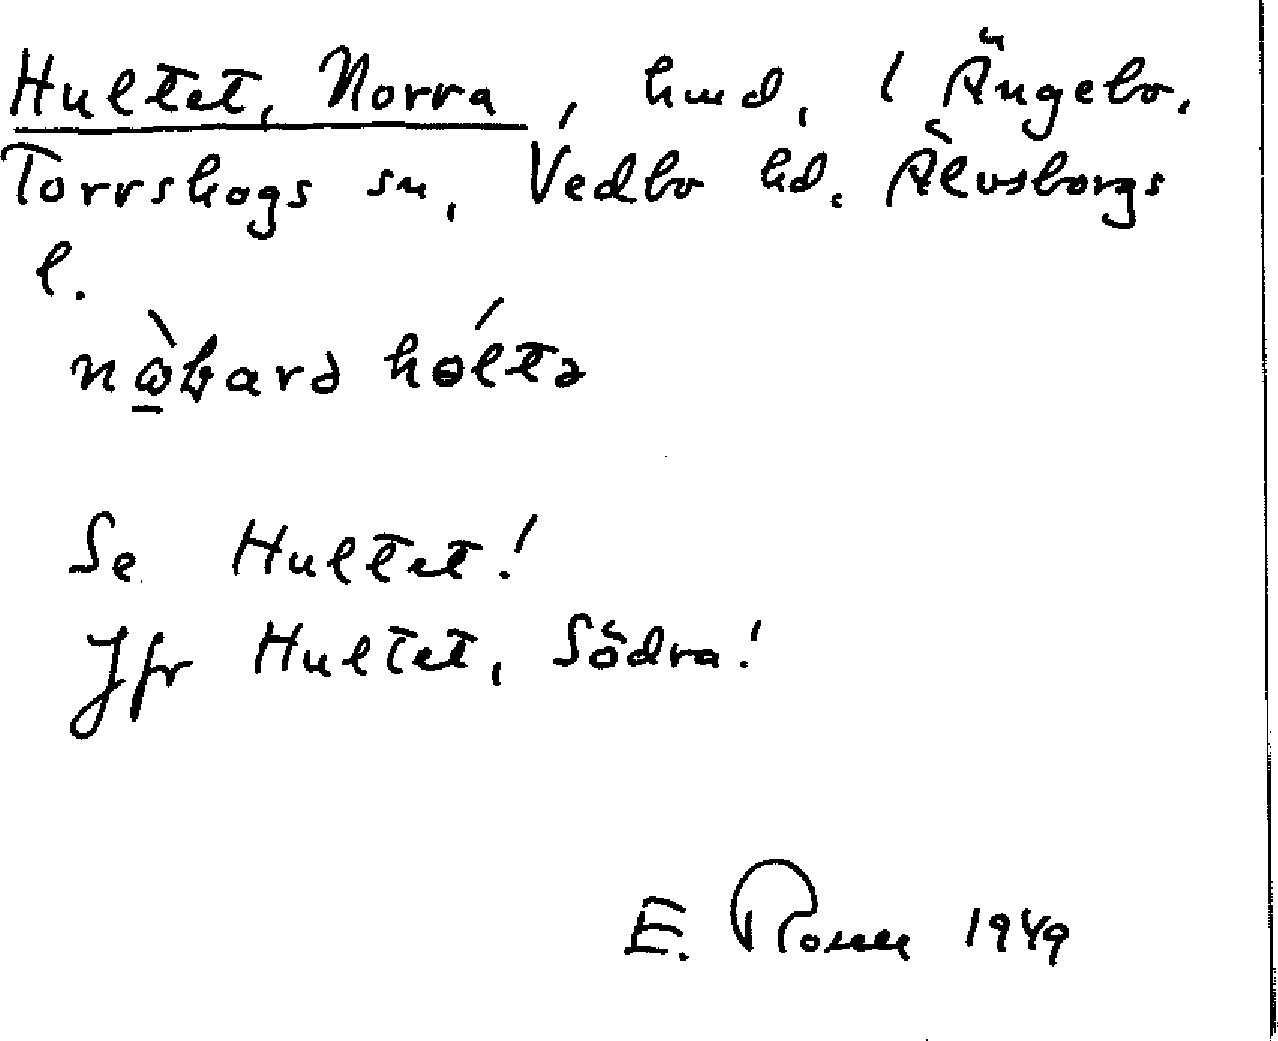 Hultet, Norra, hmd, 1 Ängebo,
Torrskogs sn, Vedbo hd. Älvsborgs
l.
Se Hultet!
Jfr Hultet, Södra!
E. 1949